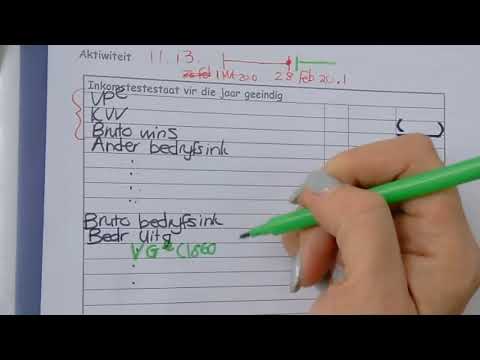 Aktiwiteit 11.13.
28 Feb 20.1
Inkomstestestaat vir die jaar geeindig
VPE
KVV
Bruto wins
Ander bedryfsink
Bruto bedryfsink
Bedr Uitg
VG